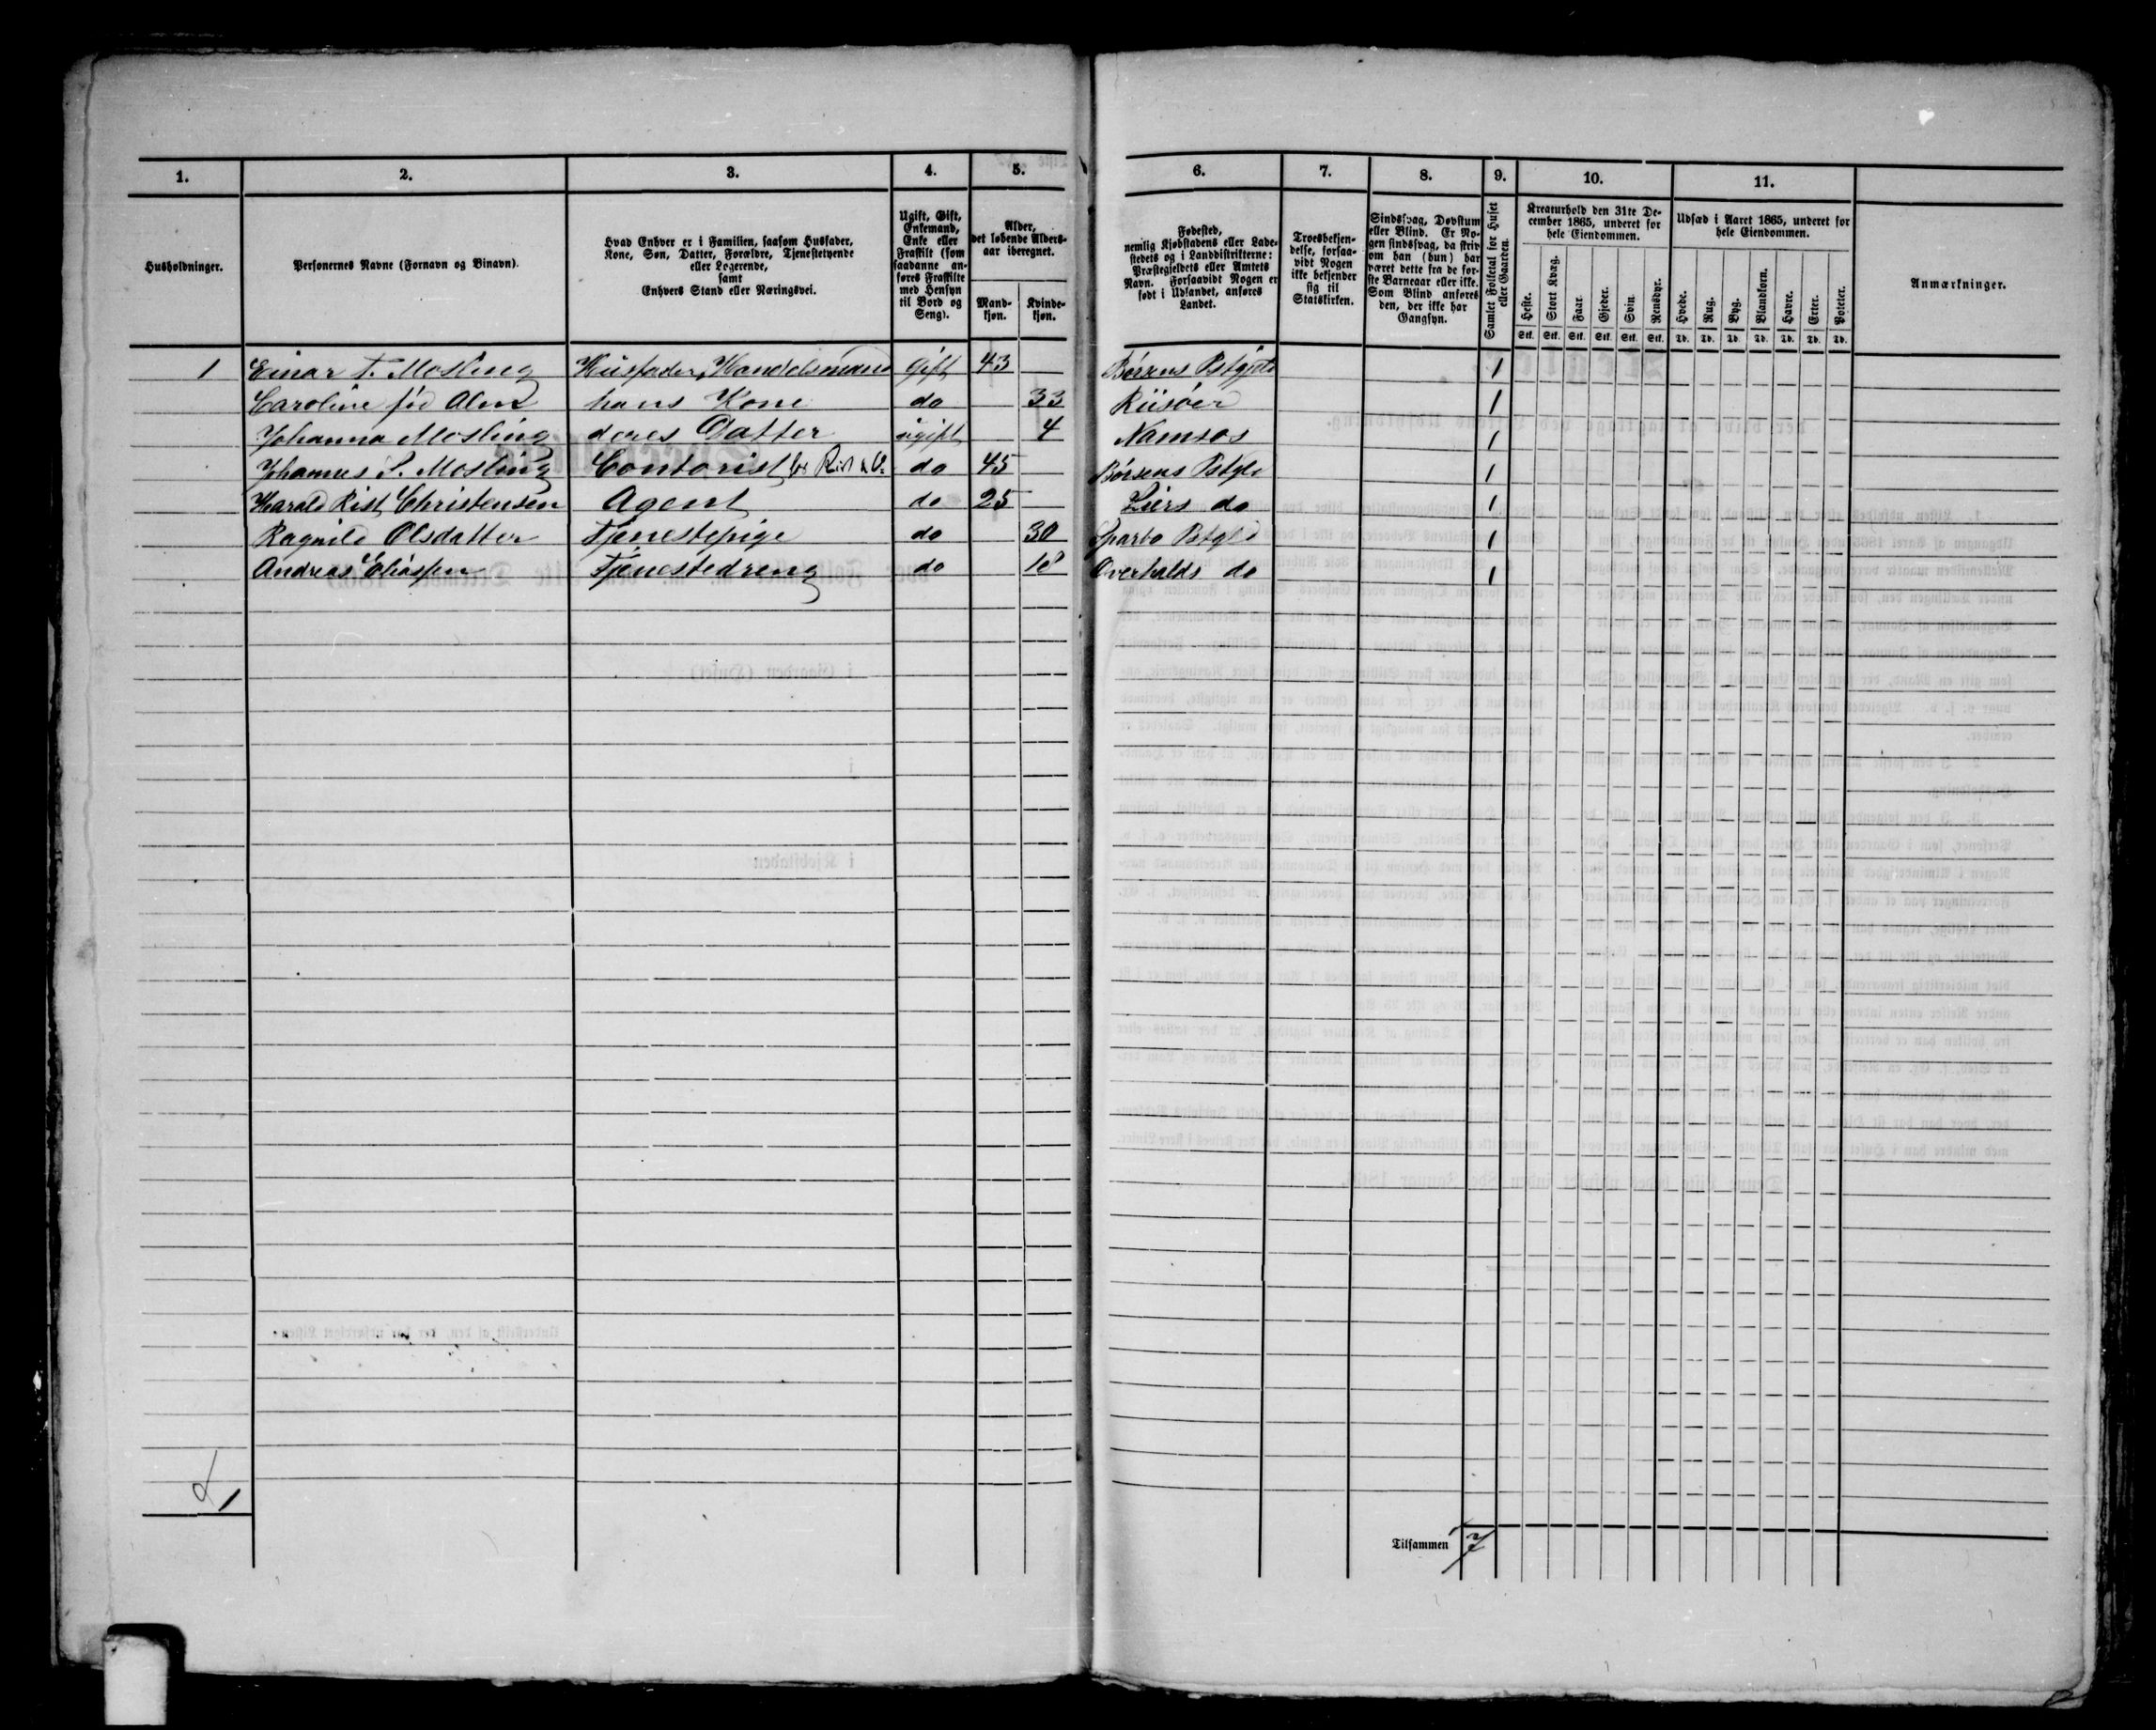 1. 2. 3. 4. 5. 6. 7. 8. 9. 10. 11.
Husholdninger.
Personernes Navne (Fornavn og Binavn).
Hvad Enhver er i Familien, saasom Husfader,
Kone, Søn, Datter, Forældre, Tjenestetyende
eller Logerende,
samt
Enhvers Stand eller Næringsvei.
Ugift, Gift,
Enkemand,
Enke eller
Fraskilt (som
saadanne an-
føres Fraskilte
med Hensyn
til Bord og
Seng).
Alder,
det løbende Alders-
aar iberegnet.
Mand-
kjøn.
Kvinde-
kjøn.
Fødested,
nemlig Kjøbstadens eller Lade-
stedets og i Landdistrikterne:
Præstegjeldets eller Amtets
Navn. Forsaavidt Nogen er
født i Udlandet, anføres
Landet.
Troesbekjen-
delse, forsaa-
vidt Nogen
ikke bekjender
sig til
Statskirken.
Sindssvag, Døvstum
eller Blind. Er No-
gen sindssvag, da skriv
om han (hun) har
været dette fra de før-
ste Barneaar eller ikke.
Som Blind anføres
den, der ikke har
Gangsyn.
Samlet Folketal for Huset
eller Gaarden.
Kreaturhold den 31te De-
cember 1865, underet for
hele Eiendommen.
Heste. Stort Kvæg. Faar. Gjeder. Svin. Rensdyr.
Stk. Stk. Stk. Stk. Stk. Stk.
Udsæd i Aaret 1865, underet for
hele Eiendommen.
Hvede. Rug. Byg. Blandkorn. Havre. Erter. Poteter.
Td. Td. Td. Td. Td. Td. Td.
Anmærkninger.
1 Einar T. Mosling Husfader, Handelsmand Gift 43 Børsens Pstgjeld 1
Caroline fød Alm hans Kone do 33 Riisøer 1
Johanna Mosling deres Datter ugift 4 Namsos 1
Johannes S. Mosling Contorist for Rist & Co. do 45 Børsens Pstgld 1
Harald Rist Christensen Agent do 25 Liers do 1
Ragnild Olsdatter Tjenestepige do 30 Sparbo Pstgld 1
Andreas Eliassen Tjenestedreng do 18 Overhalds do 1
1
Tilsammen 7